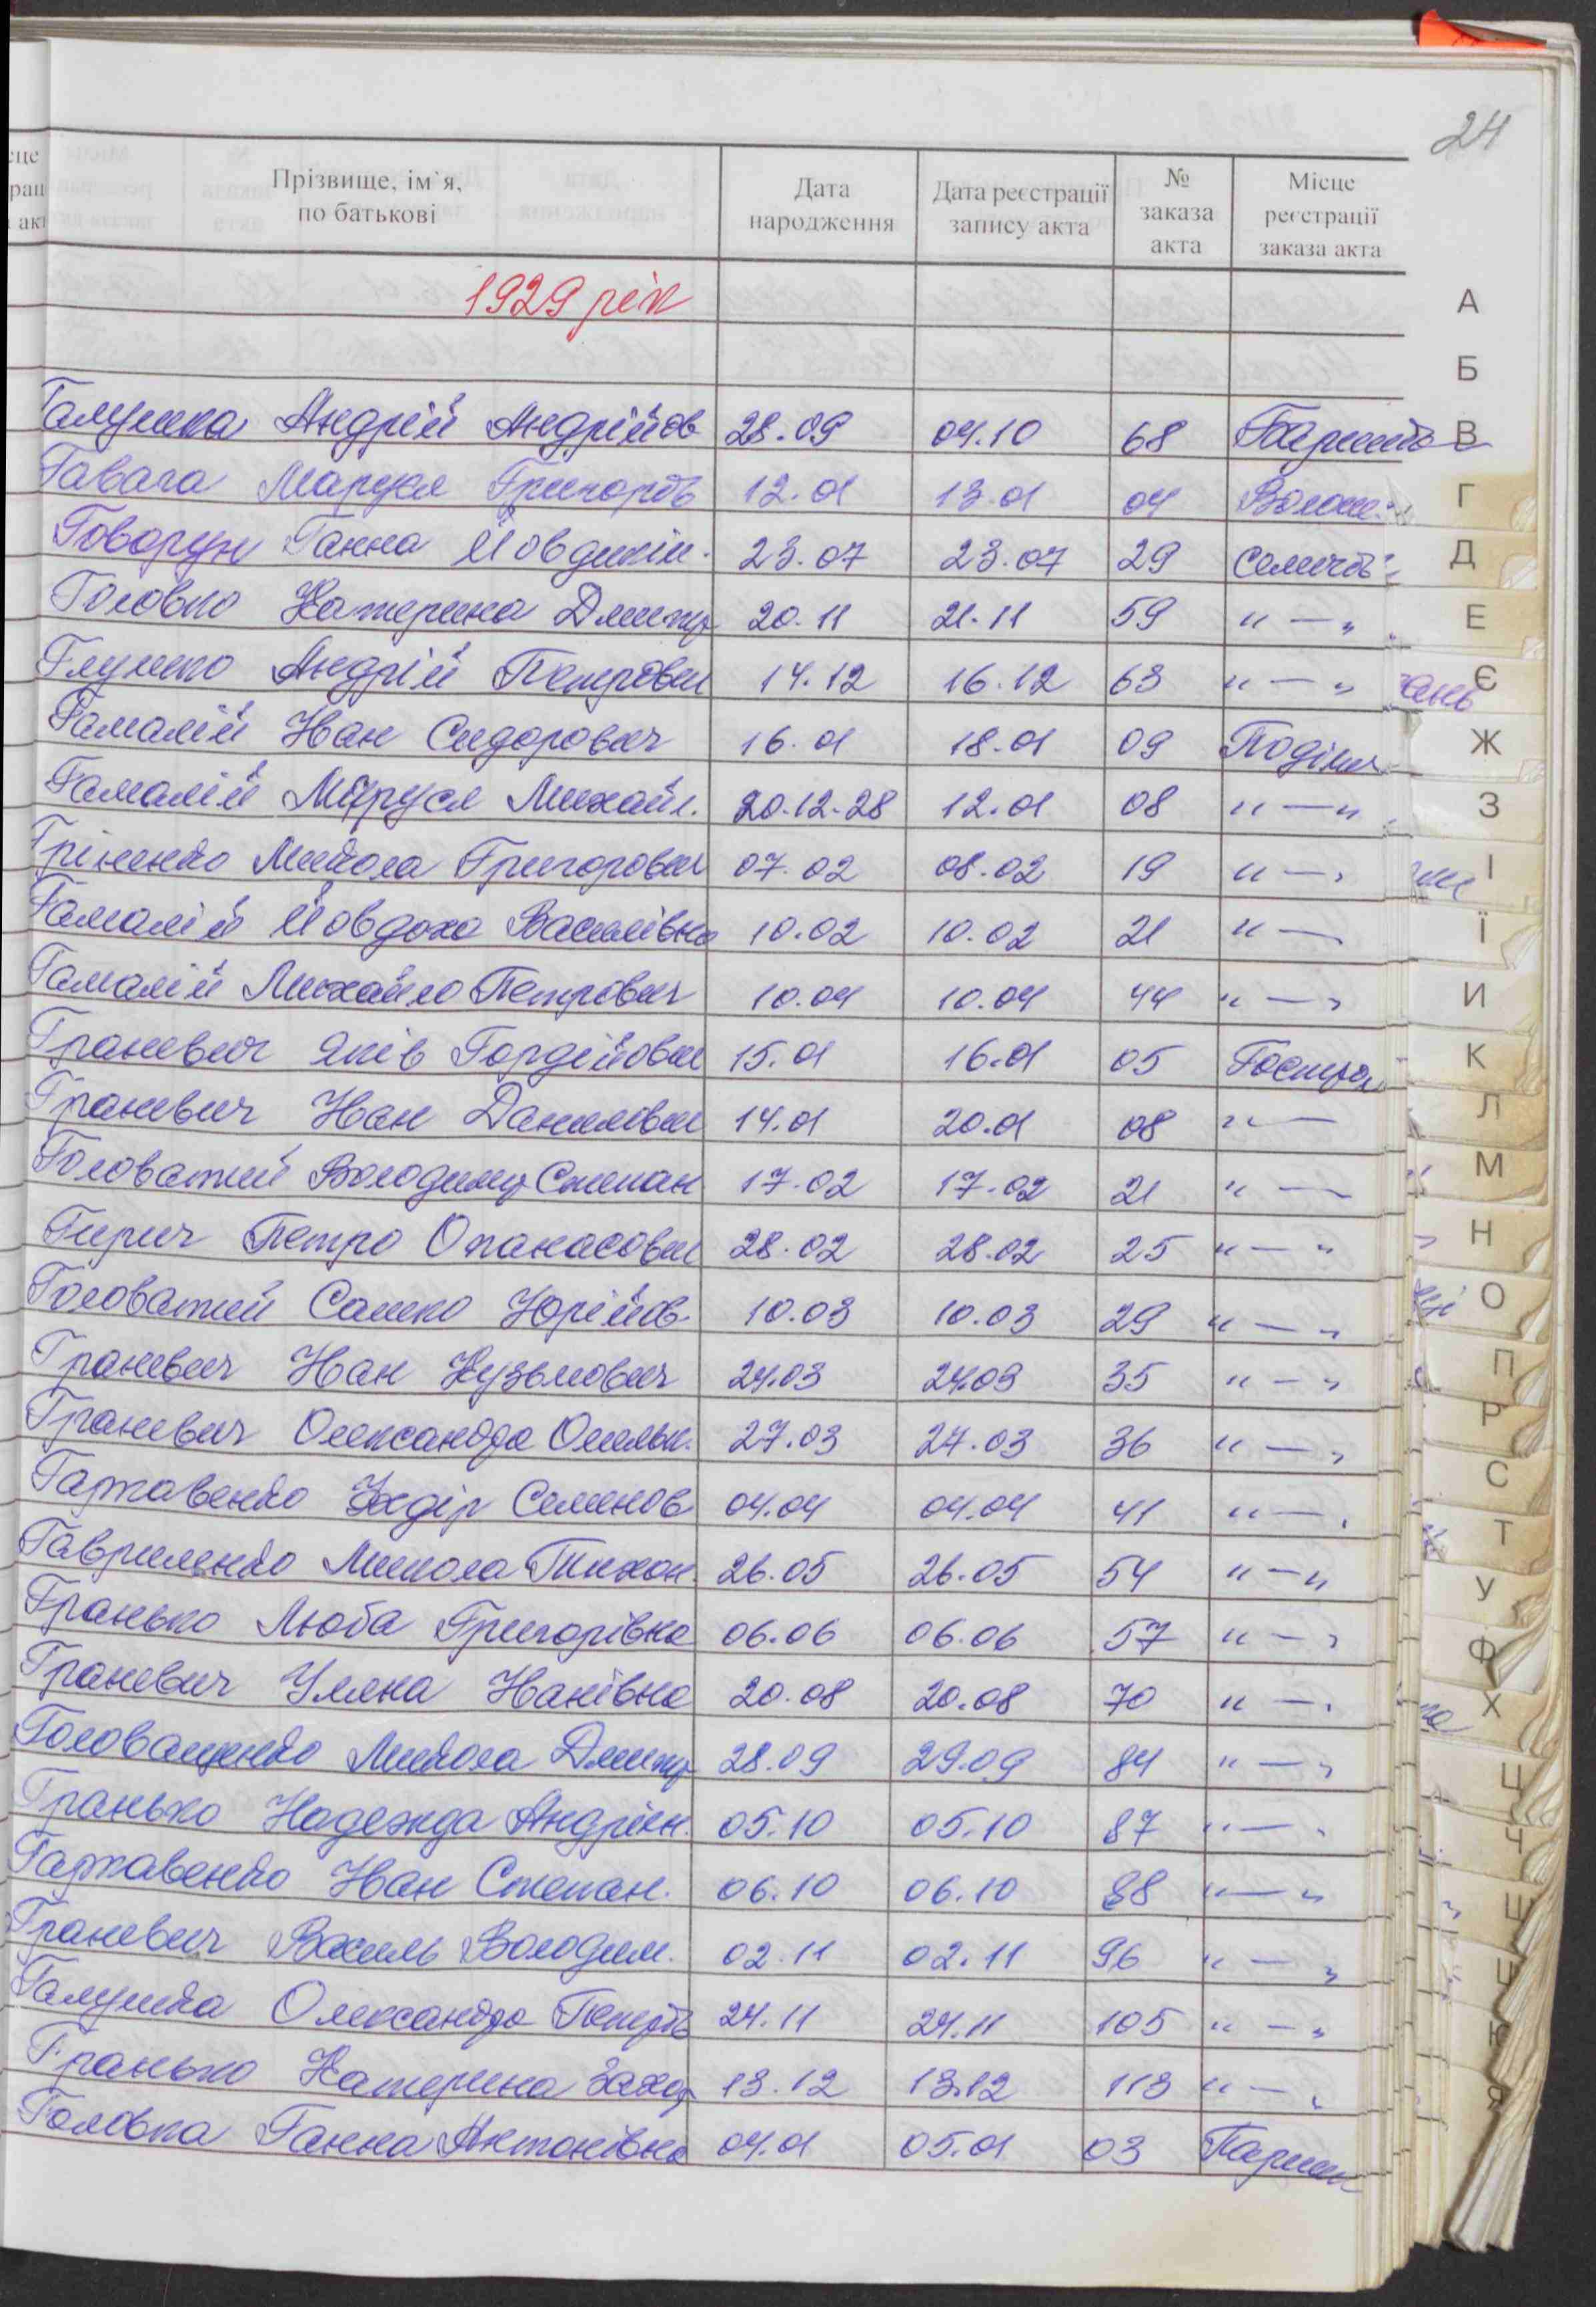 24
Прізвище, ім`я, по батькові | Дата народження | Дата реєстрації запису акта | № заказа акта | Місце реєстрації заказа акта
1929 рік
Галушка Андрій Андрійов 28.09 04.10 68
Гавага Маруся Григорів 12.01 13.01 04 Волош.
Говорун Ганна Йовдикім. 23.07 23.07 29
Головко Катерина Дмитр 20.11 21.11 59 " — "
Глушко Андрій Петрович 14.12 16.12 63 " — "
Гамалій Іван Сидорович 16.01 18.01 09
Гамалій Маруся Михайл. 20.12.28 12.01 08 " — "
Гріненко Микола Григорович 07.02 08.02 19 " — "
Гамалій Йовдоха Василівна 10.02 10.02 21 " —
Гамалій Михайло Петрович 10.04 10.04 44 " — "
Граневич Яків Гордійович 15.01 16.01 05 Гостра
Граневич Іван Данилович 14.01 20.01 08 " —
Головатий Володимир Степан 17.02 17.02 21 " —
Гирич Петро Опанасович 28.02 28.02 25 " — "
Головатий Сашко Юрійов. 10.03 10.03 29 " — "
Граневич Іван Кузьмович 24.03 24.03 35 " — "
Граневич Олександра Омельк. 27.03 27.03 36 " — "
Гаркавенко Хведір Семенов 04.04 04.04 41 " — "
Гавриленко Микола Тихон. 26.05 26.05 54 " — "
Гранько Люба Григорівна 06.06 06.06 57 " — "
Граневич Уляна Іванівна 20.08 20.08 70 " — "
Головащенко Микола Дмитр 28.09 29.09 84 " — "
Гранько Надежда Андріян. 05.10 05.10 87 " — "
Гаркавенко Іван Степан. 06.10 06.10 88 " — "
Граневич Василь Володим. 02.11 02.11 96 " — "
Галушка Олександра Петрів 24.11 24.11 105 " — "
Гранько Катерина Захар 13.12 13.12 113 " — "
Головка Ганна Антонівна 04.01 05.01 03
А
Б
В
Г
Д
Е
Є
Ж
З
І
Ї
И
К
Л
М
Н
О
П
Р
С
Т
У
Ф
Х
Ц
Ч
Ш
Щ
Ю
Я